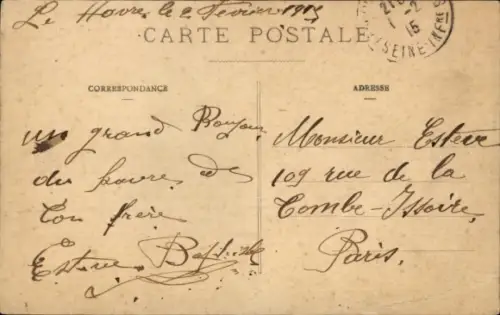 Le Havre le 2 Février 1915
CARTE POSTALE
SEINE-INFRE
15
CORRESPONDANCE
ADRESSE
un grand Bonjour
du havre de
ton frère
Esteve
Monsieur Esteve
109 rue de la
Tombe-Issoire
Paris.